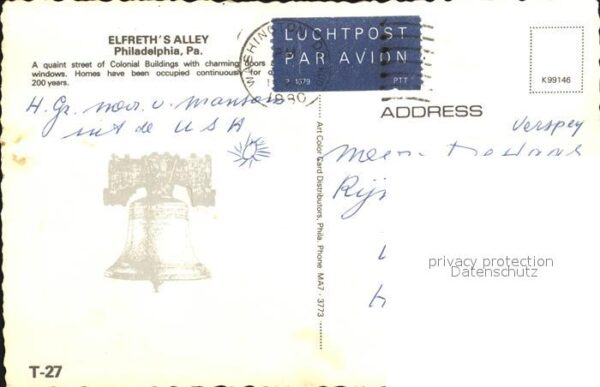 ELFRETH'S ALLEY
Philadelphia, Pa.
A quaint street of Colonial Buildings with charming doors
windows. Homes have been occupied continuously for
200 years.
WASHINGTON, D
1980
LUCHTPOST
PAR AVION
P 1579
PTT
K99146
ADDRESS
H. Gr. v.
uit de USA
Art Color Card Distributors, Phila. Phone MA7 - 3773
Verspey
Rij
privacy protection
Datenschutz
T-27